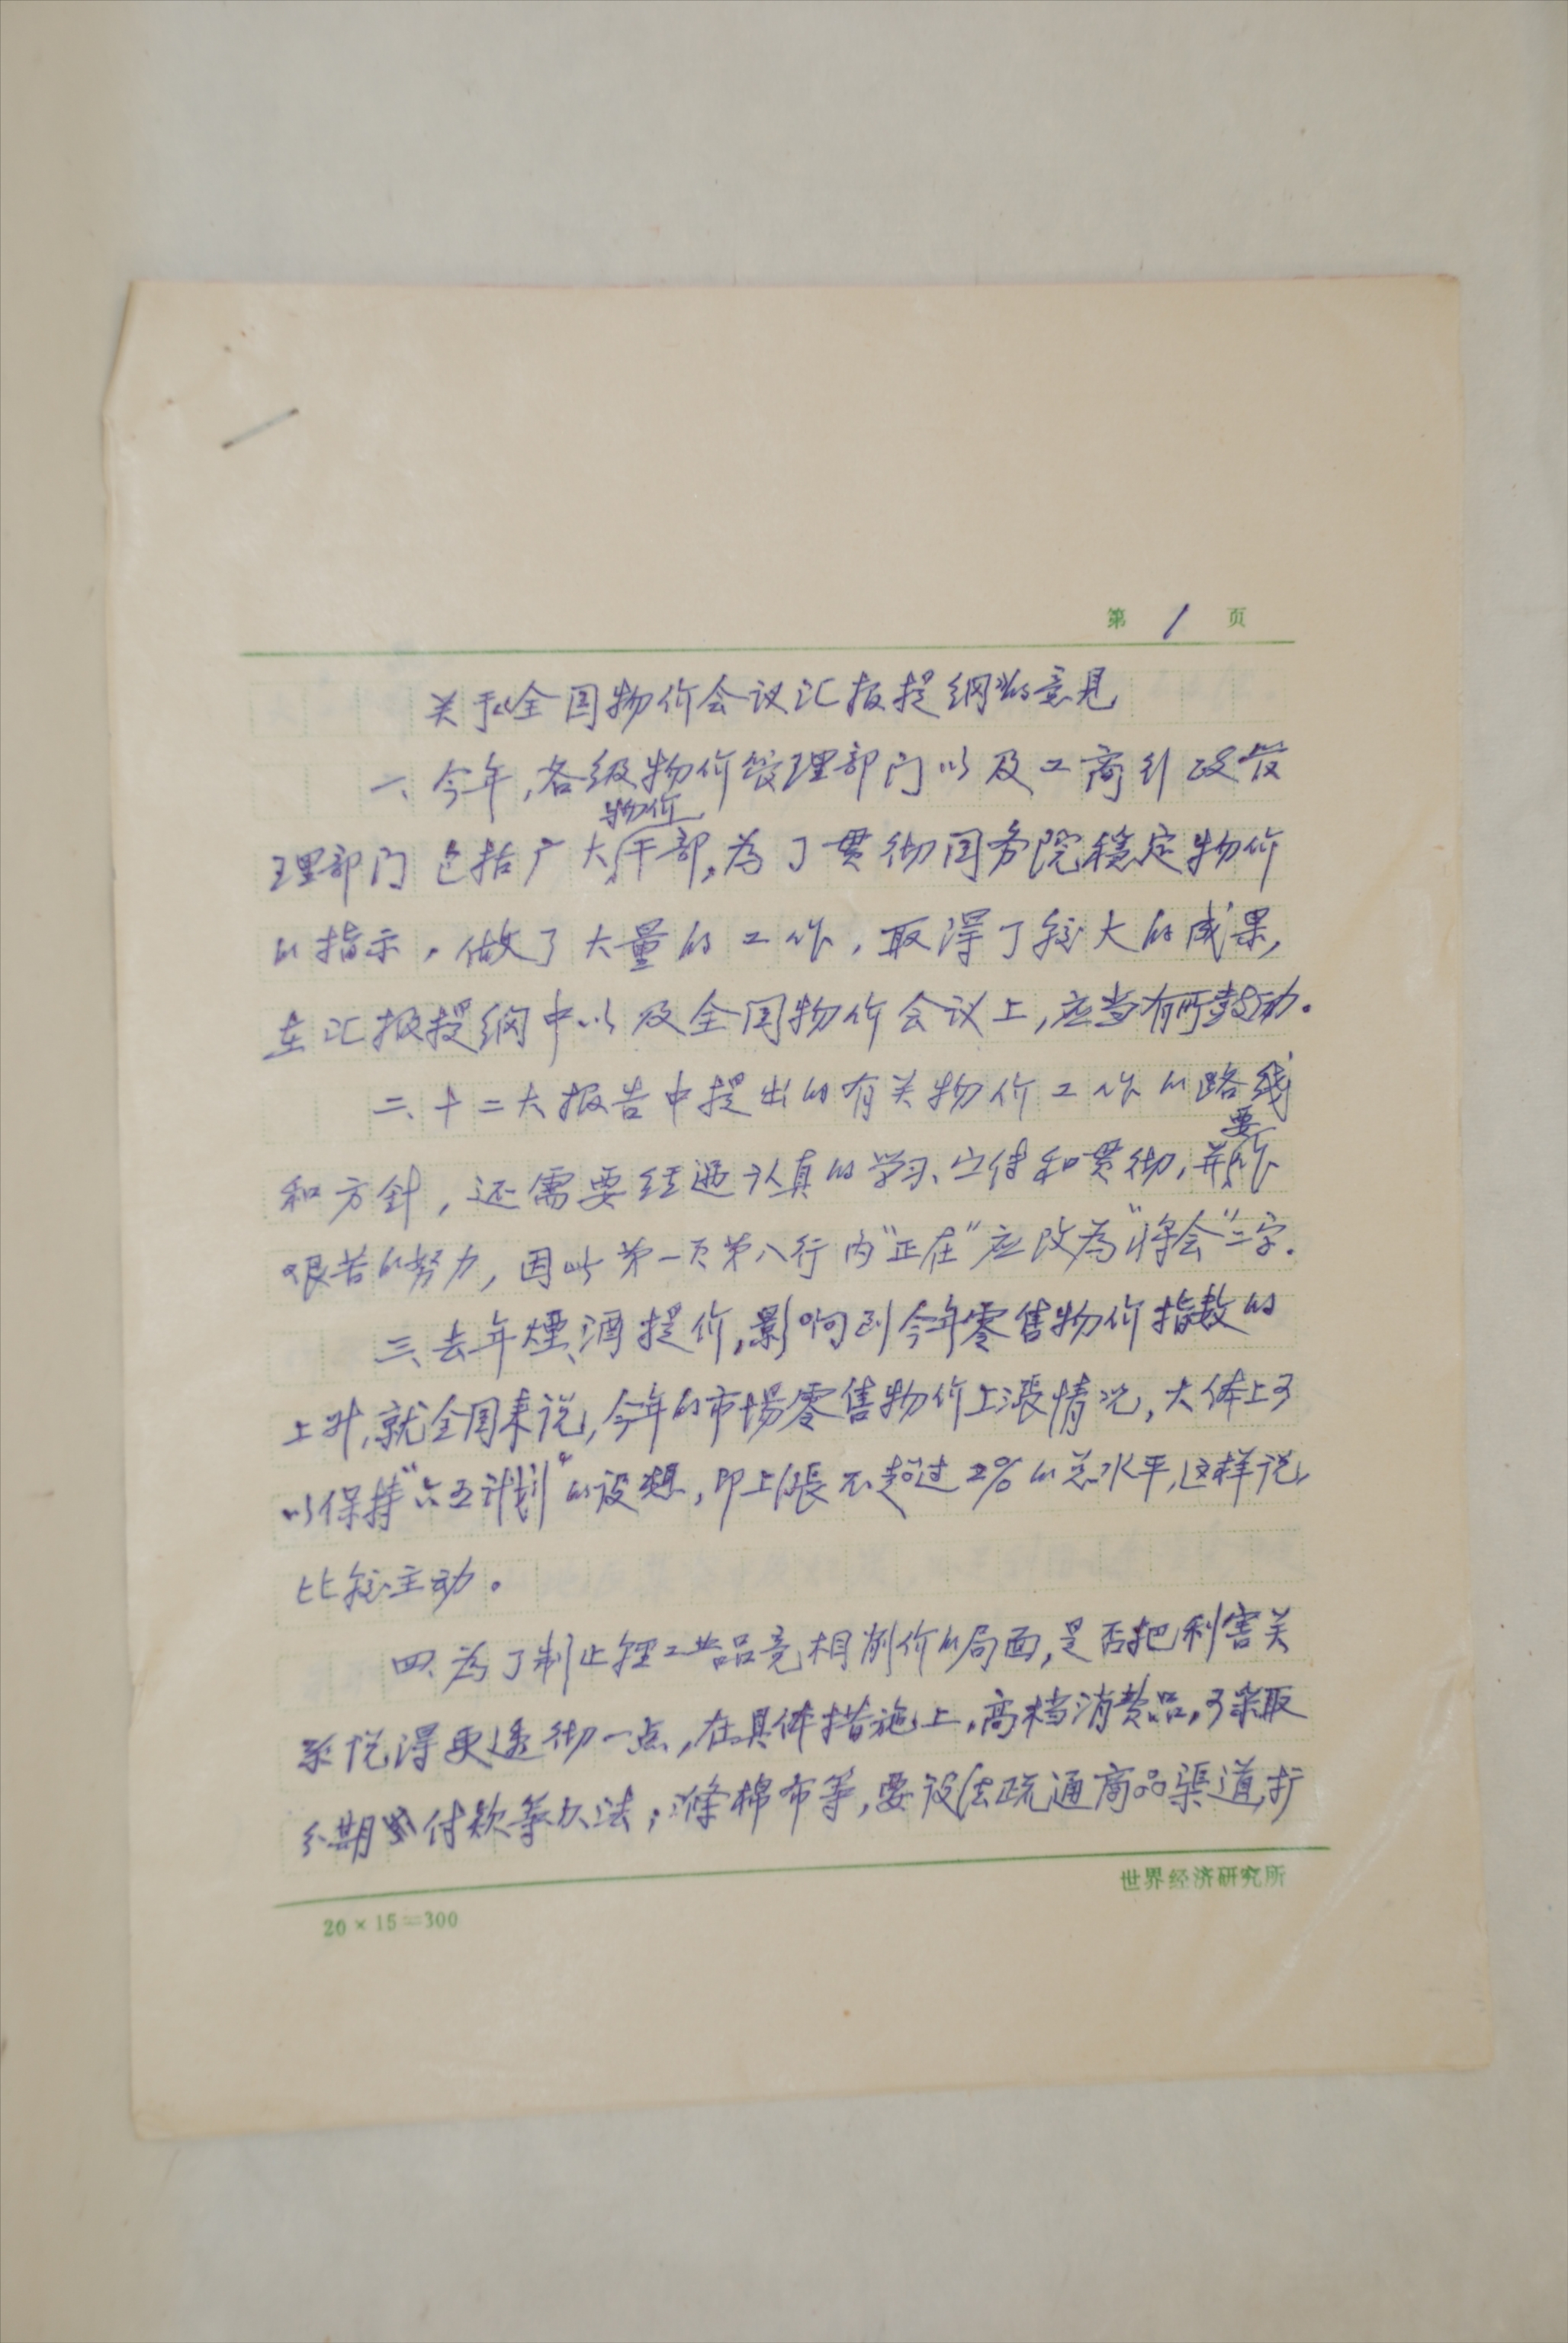 第 1 页
关于《全国物价会议汇报提纲》的意见
一、今年,各级物价管理部门以及工商行政管
理部门包括广大物价干部,为了贯彻国务院稳定物价
的指示,做了大量的工作,取得了较大的成果,
在汇报提纲中以及全国物价会议上,应当有所鼓动。
二、十二大报告中提出的有关物价工作的路线
和方針,还需要经过认真的学习、宣传和贯彻,并要作
艰苦的努力,因此第一页第八行内"正在"应改為"将会"二字。
三、去年煙、酒提价,影响到今年零售物价指数的
上升,就全国来说,今年的市场零售物价上漲情况,大体上可
以保持"六五计划"的设想,即上漲不超过2%的总水平,这样说,
比较主动。
四、为了制止轻工业品竞相削价的局面,是否把利害关
系说得更透彻一点,在具体措施上,高档消费品,可采取
分期付款等办法;涤棉布等,要设法疏通商品渠道,扩
世界经济研究所
20×15=300